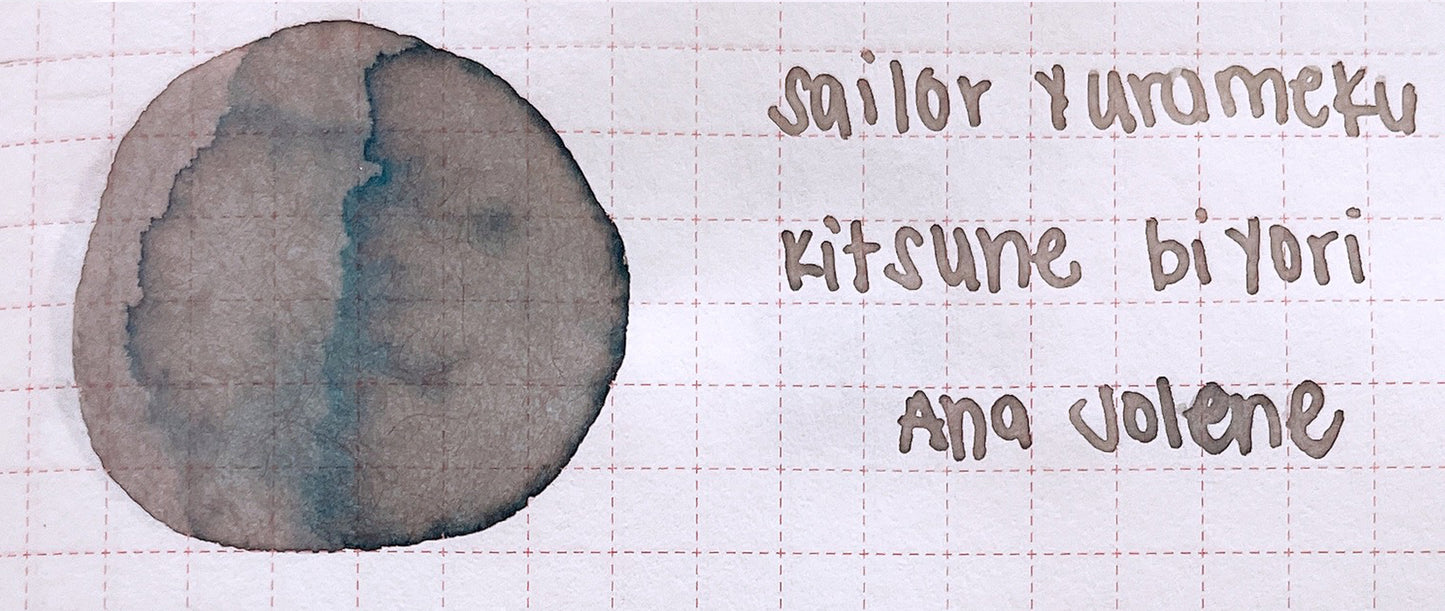 sailor yurameku
kitsune biyori
Ana Jolene